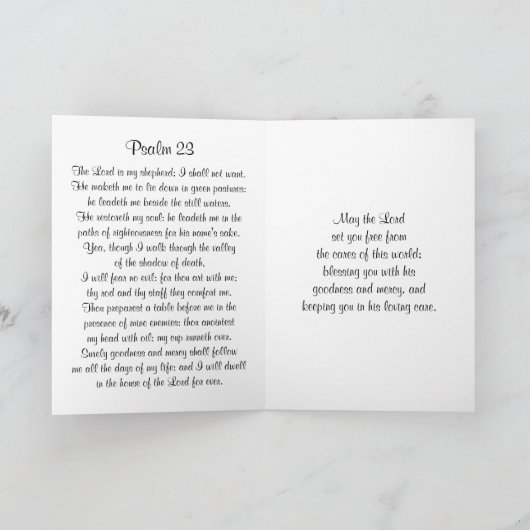 Psalm 23
The Lord is my shepherd; I shall not want.
He maketh me to lie down in green pastures:
he leadeth me beside the still waters.
He restoreth my soul: he leadeth me in the
paths of righteousness for his name's sake.
Yea, though I walk through the valley
of the shadow of death,
I will fear no evil: for thou art with me;
thy rod and thy staff they comfort me.
Thou preparest a table before me in the
presence of mine enemies: thou anointest
my head with oil; my cup runneth over.
Surely goodness and mercy shall follow
me all the days of my life: and I will dwell
in the house of the Lord for ever.
May the Lord
set you free from
the cares of this world;
blessing you with his
goodness and mercy, and
keeping you in his loving care.